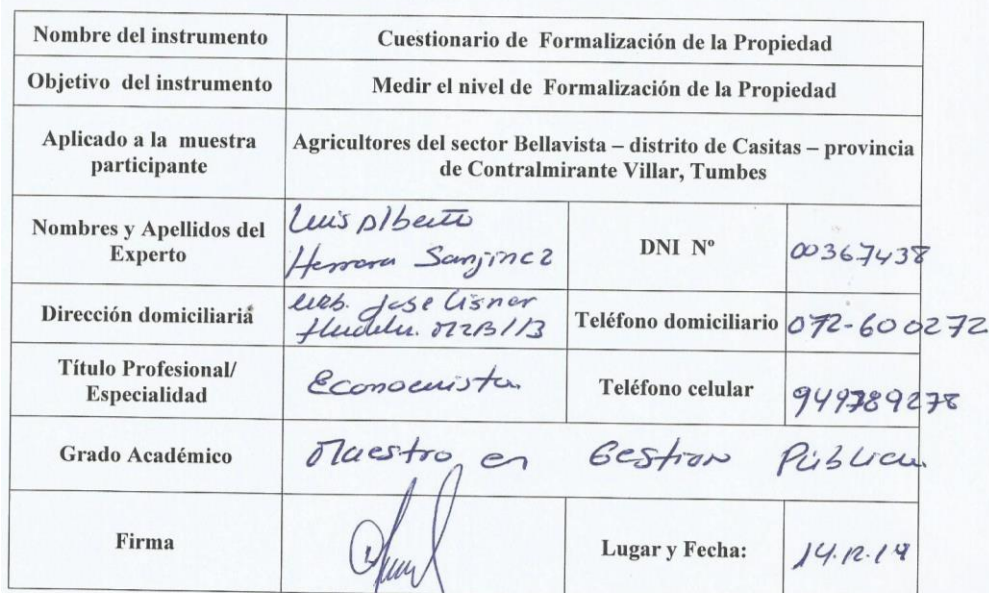 Nombre del instrumento
Cuestionario de Formalización de la Propiedad
Objetivo del instrumento
Medir el nivel de Formalización de la Propiedad
Aplicado a la muestra
participante
Agricultores del sector Bellavista – distrito de Casitas – provincia
de Contralmirante Villar, Tumbes
Nombres y Apellidos del
Experto
Luis Alberto
Herrera Sanjinez
DNI Nº
00367438
Dirección domiciliaria
Urb. Jose Lisner
Teléfono domiciliario
072-600272
Título Profesional/
Especialidad
Economista
Teléfono celular
949789278
Grado Académico
Maestro en Gestion Pública
Firma
Lugar y Fecha:
14.12.19